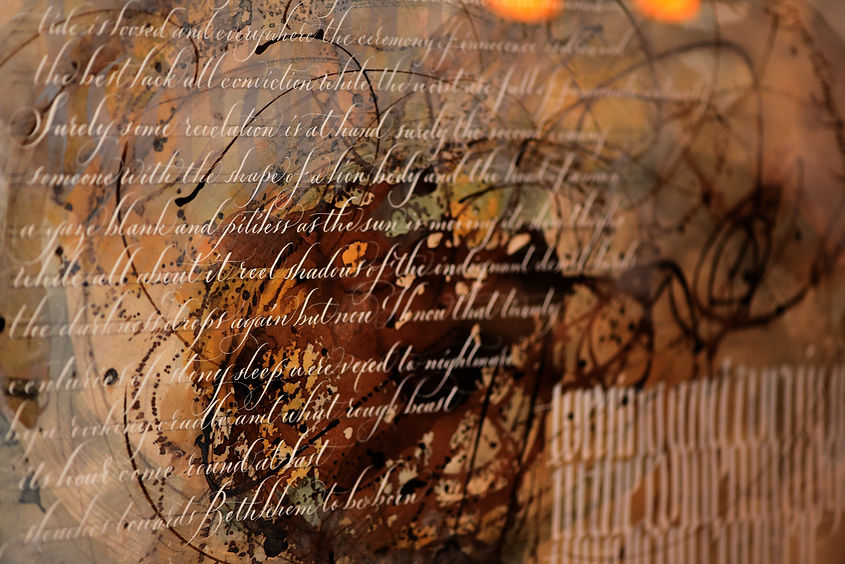 tide is loosed and everywhere the ceremony of innocence and
the best lack all conviction while the worst are full of
Surely some revelation is at hand surely the second coming
someone with the shape of a lion body and the head of a man
a gaze blank and pitiless as the sun is moving its slow thighs
while all about it reel shadows of the indignant desert birds
the darkness drops again but now I know that twenty
centuries of stony sleep were vexed to nightmare
by a rocking cradle and what rough beast
its hour come round at last
slouches towards Bethlehem to be born